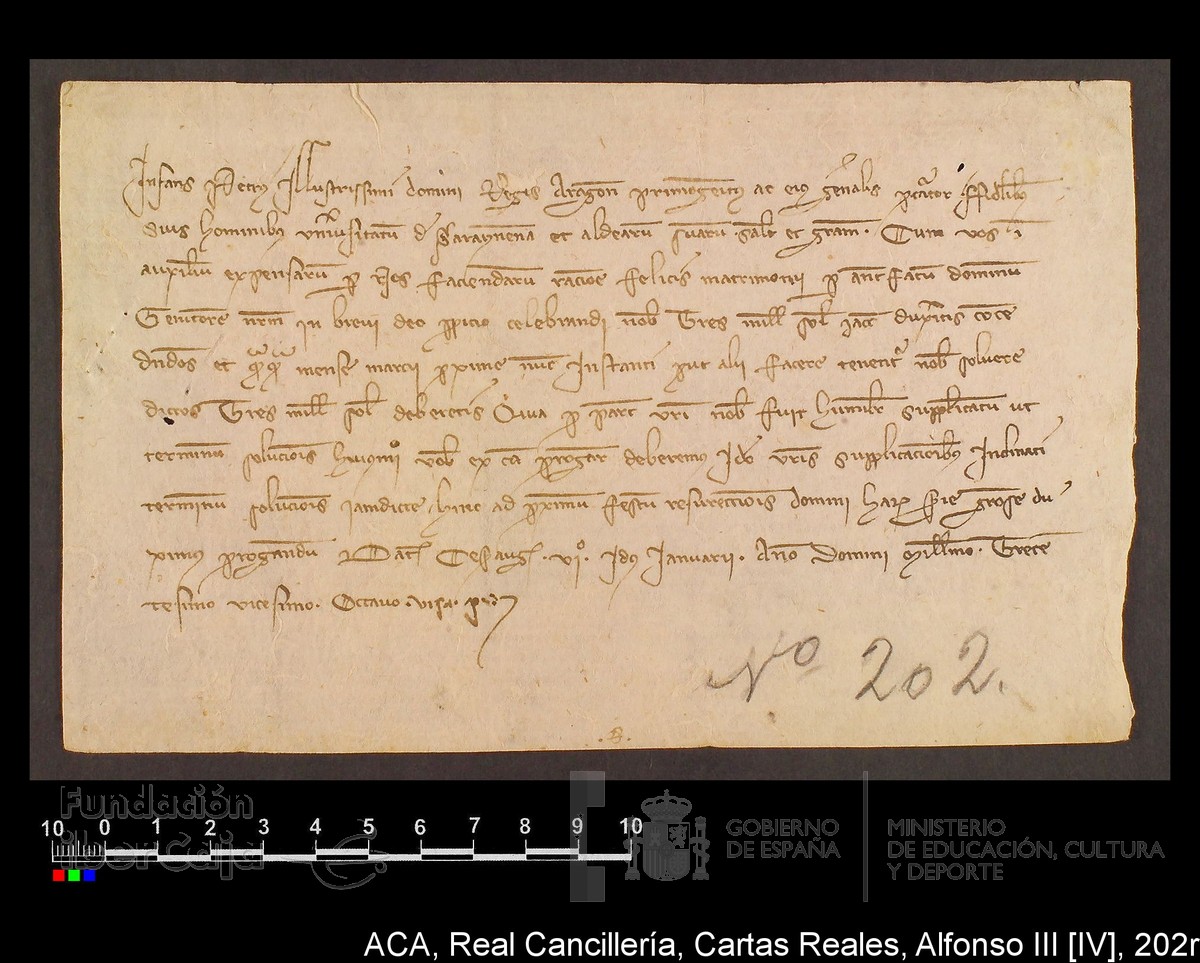 Infans Petrus Illustrissimi domini Regis Aragon primogenitus ac eius gñalis pcuator ffidelibȝ
Suis hominibȝ vniusitatũ de Saraynena et aldearũ suarũ saltm et gram. Cum vos in
auxiliũ expensarũ p nos faciendarũ racioe felicis matrimonii p antefatũ dominũ
Genitorẽ nrm in breui deo ppicio celebrandi nob Tres mill sol iacc duxitis
et mense marcii pxime nũc Instanti put alii facere tenentr nob soluere
dictos Tres mill sol deberetis Quia p parte vrã nob fuit humilr supplicatũ ut
terminum soluciois huiusmoi vob ex cã progare deberemus Ido vris supplicacioibȝ Inclinati
terminũ soluciois iamdicte hinc ad pximũ festũ resureccionis domini harȝ sie du
ximus progandũ Datȝ Cesaugȝ. vjº. Idus Januarii. Año Domini Millmo. Trecẽ
tesimo vicesimo. Octauo. visa.
Nº 202.
Fundación
iberCaja
10 0 1 2 3 4 5 6 7 8 9 10
GOBIERNO
DE ESPAÑA
MINISTERIO
DE EDUCACIÓN, CULTURA
Y DEPORTE
ACA, Real Cancillería, Cartas Reales, Alfonso III [IV], 202r